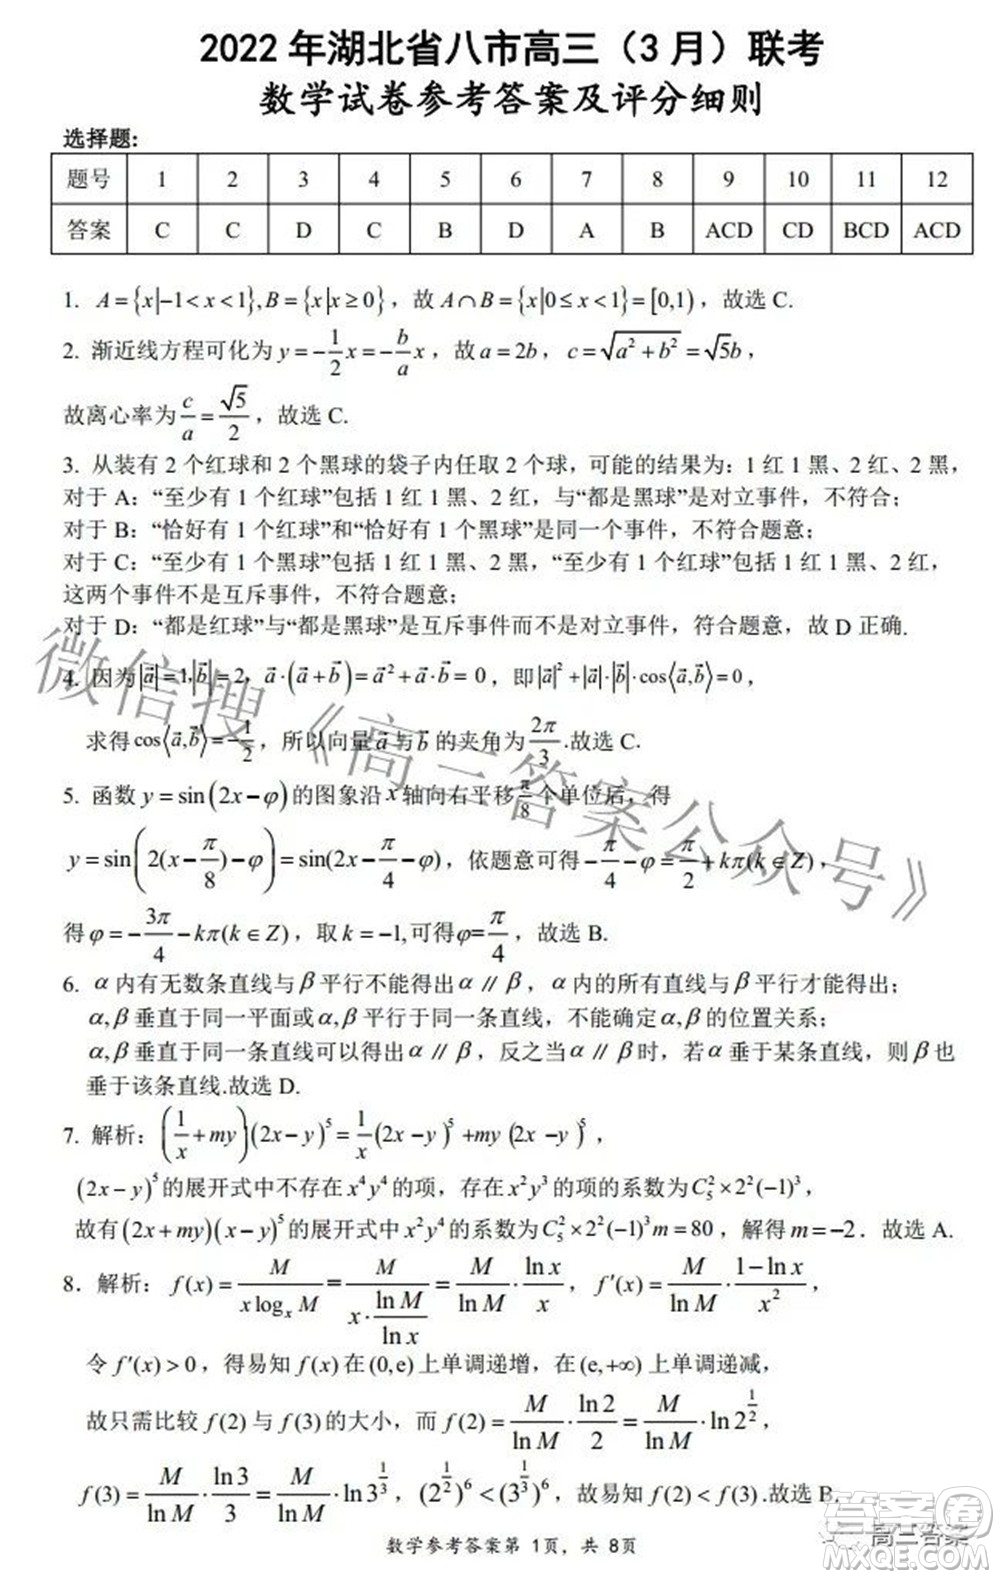 2022 年湖北省八市高三（3 月）联考
数学试卷参考答案及评分细则
选择题:
题号 1 2 3 4 5 6 7 8 9 10 11 12
答案 C C D C B D A B ACD CD BCD ACD
1. A={x|-1<x<1},B={x|x≥0}，故 A∩B={x|0≤x<1}=[0,1)，故选 C.
2. 渐近线方程可化为 y=-1/2x=-b/ax，故 a=2b，c=√(a²+b²)=√5b，
故离心率为 c/a=√5/2，故选 C.
3. 从装有 2 个红球和 2 个黑球的袋子内任取 2 个球，可能的结果为：1 红 1 黑、2 红、2 黑，
对于 A：“至少有 1 个红球”包括 1 红 1 黑、2 红，与“都是黑球”是对立事件，不符合；
对于 B：“恰好有 1 个红球”和“恰好有 1 个黑球”是同一个事件，不符合题意；
对于 C：“至少有 1 个黑球”包括 1 红 1 黑、2 黑，“至少有 1 个红球”包括 1 红 1 黑、2 红，
这两个事件不是互斥事件，不符合题意；
对于 D：“都是红球”与“都是黑球”是互斥事件而不是对立事件，符合题意，故 D 正确.
4. 因为|a⃗|=1,|b⃗|=2，a⃗·(a⃗+b⃗)=a⃗²+a⃗·b⃗=0，即|a⃗|²+|a⃗|·|b⃗|·cos⟨a⃗,b⃗⟩=0，
求得 cos⟨a⃗,b⃗⟩=-1/2，所以向量 a⃗ 与 b⃗ 的夹角为 2π/3.故选 C.
5. 函数 y=sin(2x-φ)的图象沿 x 轴向右平移 π/8 个单位后，得
y=sin(2(x-π/8)-φ)=sin(2x-π/4-φ)，依题意可得-π/4-φ=π/2+kπ(k∈Z)，
得 φ=-3π/4-kπ(k∈Z)，取 k=-1,可得φ=π/4，故选 B.
6. α 内有无数条直线与 β 平行不能得出 α∥β，α 内的所有直线与 β 平行才能得出；
α,β 垂直于同一平面或 α,β 平行于同一条直线，不能确定 α,β 的位置关系；
α,β 垂直于同一条直线可以得出 α∥β，反之当 α∥β 时，若 α 垂于某条直线，则 β 也
垂于该条直线.故选 D.
7. 解析：(1/x+my)(2x-y)⁵=1/x(2x-y)⁵+my(2x-y)⁵，
(2x-y)⁵的展开式中不存在 x⁴y⁴ 的项，存在 x²y³ 的项的系数为 C₅²×2²(-1)³，
故有(2x+my)(x-y)⁵的展开式中 x²y⁴ 的系数为 C₅²×2²(-1)³m=80，解得 m=-2．故选 A.
8．解析：f(x)=M/(xlogₓM)=M/(x·lnM/lnx)=M/lnM·lnx/x，f′(x)=M/lnM·(1-lnx)/x²，
令 f′(x)>0，得易知 f(x)在(0,e)上单调递增，在(e,+∞)上单调递减，
故只需比较 f(2)与 f(3)的大小，而 f(2)=M/lnM·ln2/2=M/lnM·ln2^(1/2)，
f(3)=M/lnM·ln3/3=M/lnM·ln3^(1/3)，(2^(1/2))⁶<(3^(1/3))⁶，故易知 f(2)<f(3).故选 B.
微信搜《高三答案公众号》
答案圈
高三答案
数学参考答案第 1页，共 8页